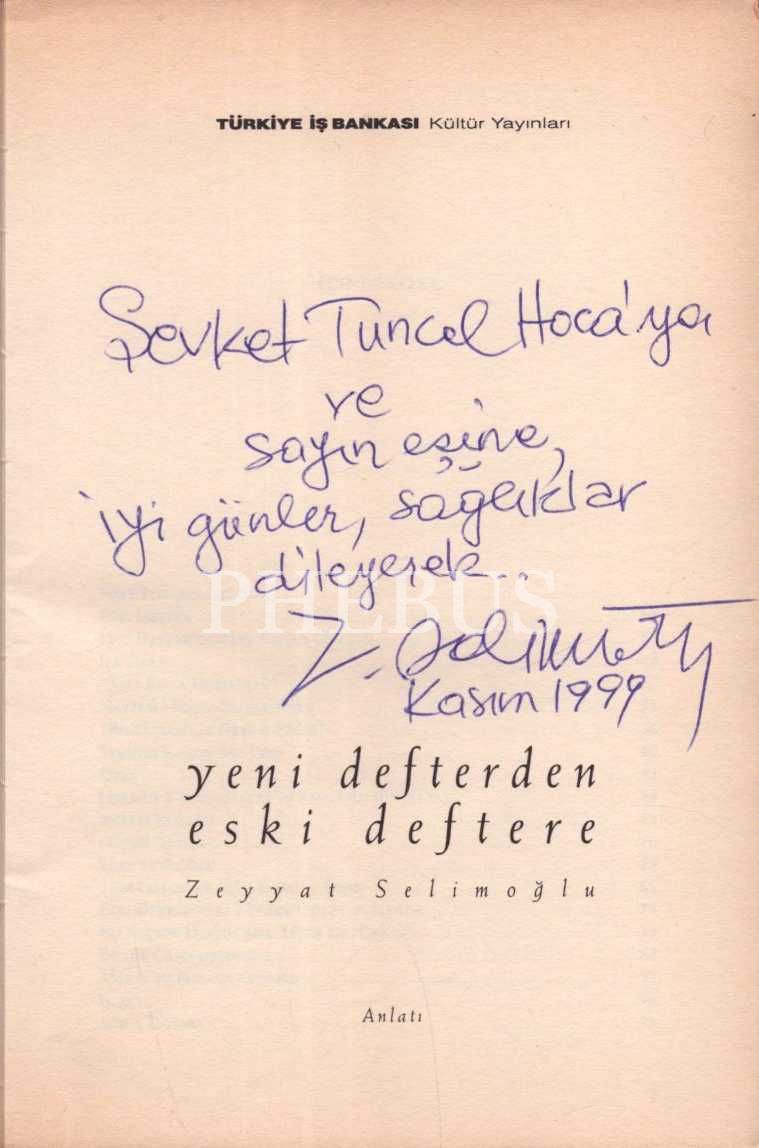 TÜRKİYE İŞ BANKASI Kültür Yayınları
Şevket Tuncel Hoca'ya
ve
sayın eşine,
iyi günler, sağlıklar
dileyerek...
PHEBUS
Z. Selimoğlu
Kasım 1999
yeni defterden
eski deftere
Zeyyat Selimoğlu
Anlatı